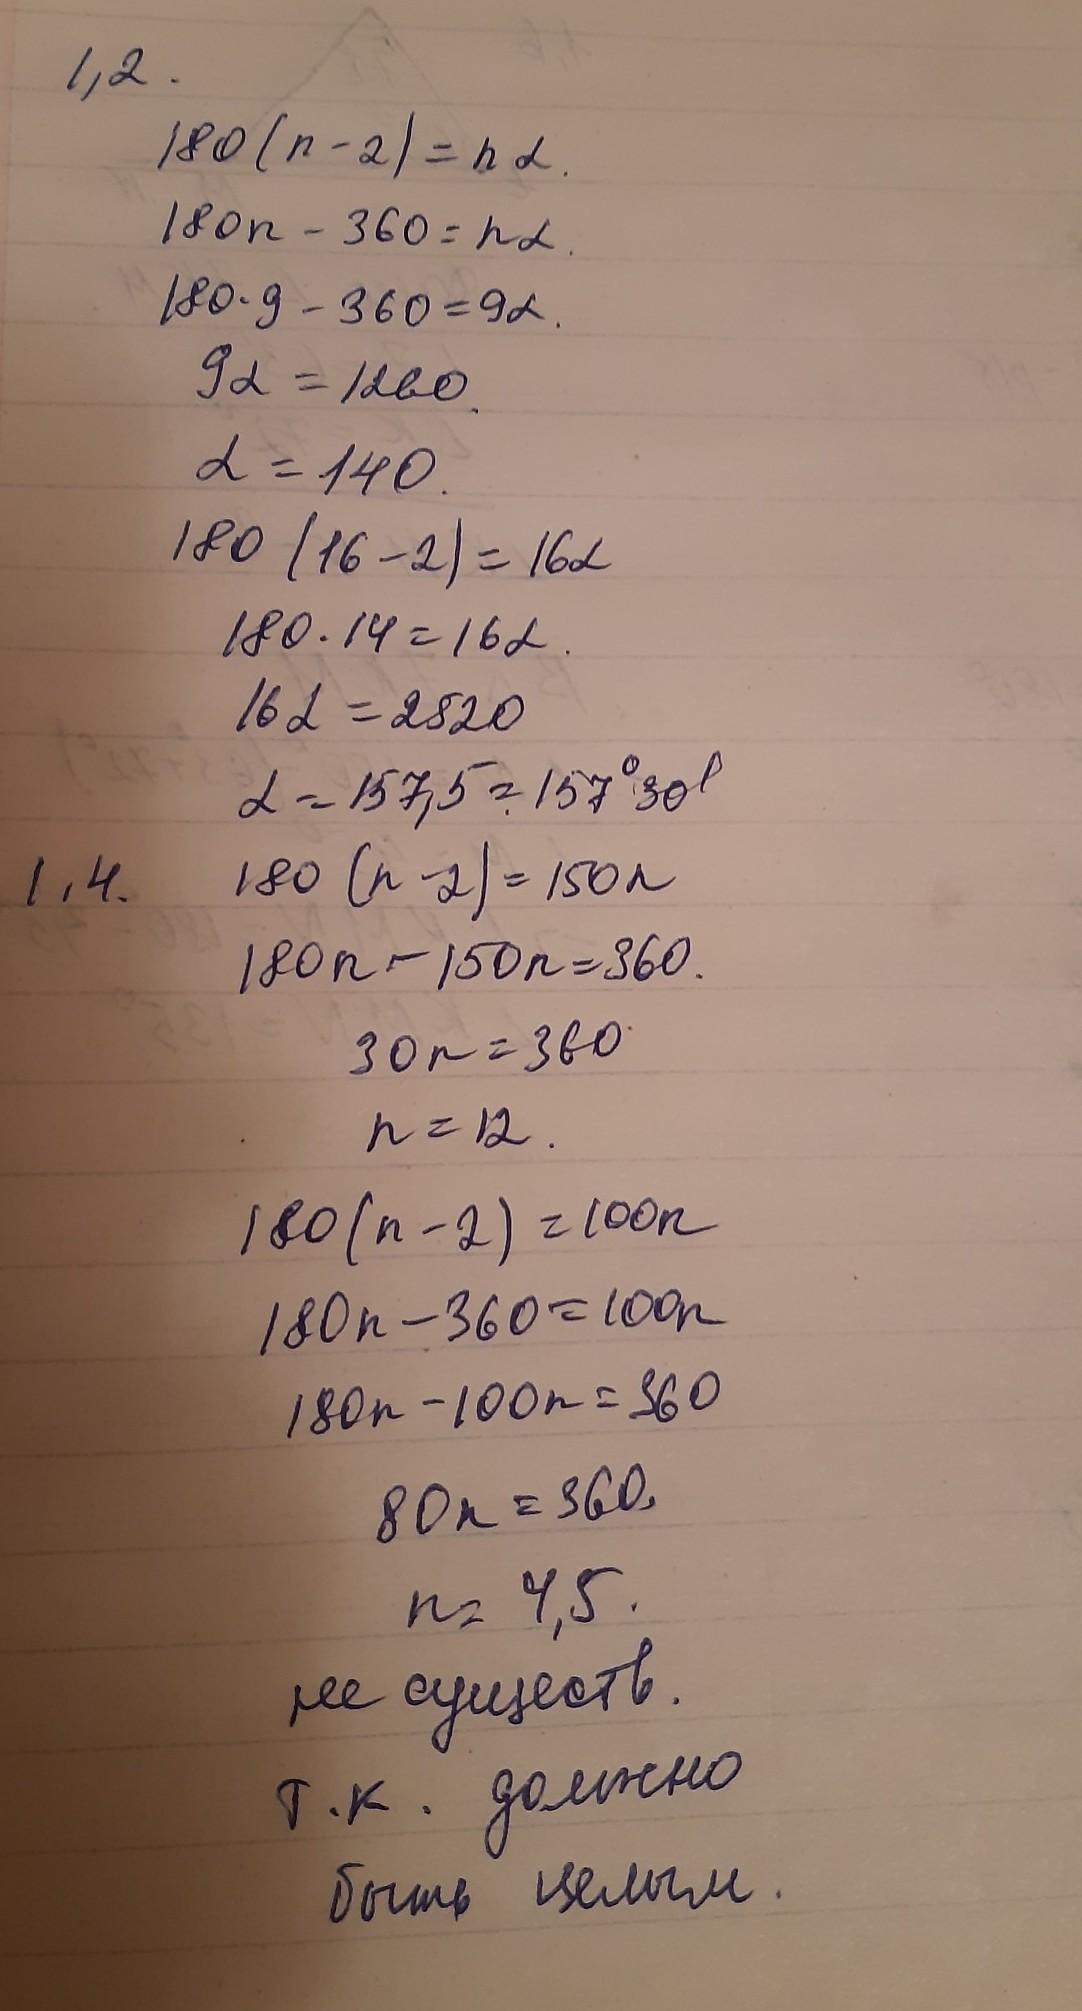 1,2.
180(n-2)=nα.
180n-360=nα.
180·9-360=9α.
9α=1260.
α=140.
180(16-2)=16α
180·14=16α.
16α=2520
α=157,5=157°30'
1,4. 180(n-2)=150n
180n-150n=360.
30n=360
n=12.
180(n-2)=100n
180n-360=100n
180n-100n=360
80n=360.
n=4,5.
не существ.
т.к. должно
быть целым.